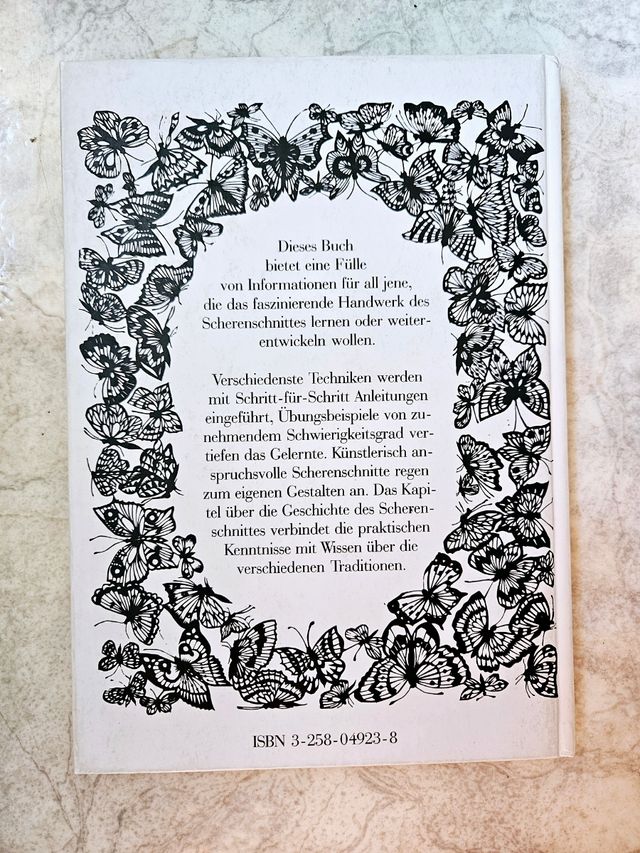 Dieses Buch
bietet eine Fülle
von Informationen für all jene,
die das faszinierende Handwerk des
Scherenschnittes lernen oder weiter-
entwickeln wollen.
Verschiedenste Techniken werden
mit Schritt-für-Schritt Anleitungen
eingeführt, Übungsbeispiele von zu-
nehmendem Schwierigkeitsgrad ver-
tiefen das Gelernte. Künstlerisch an-
spruchsvolle Scherenschnitte regen
zum eigenen Gestalten an. Das Kapi-
tel über die Geschichte des Scheren-
schnittes verbindet die praktischen
Kenntnisse mit Wissen über die
verschiedenen Traditionen.
ISBN 3-258-04923-8